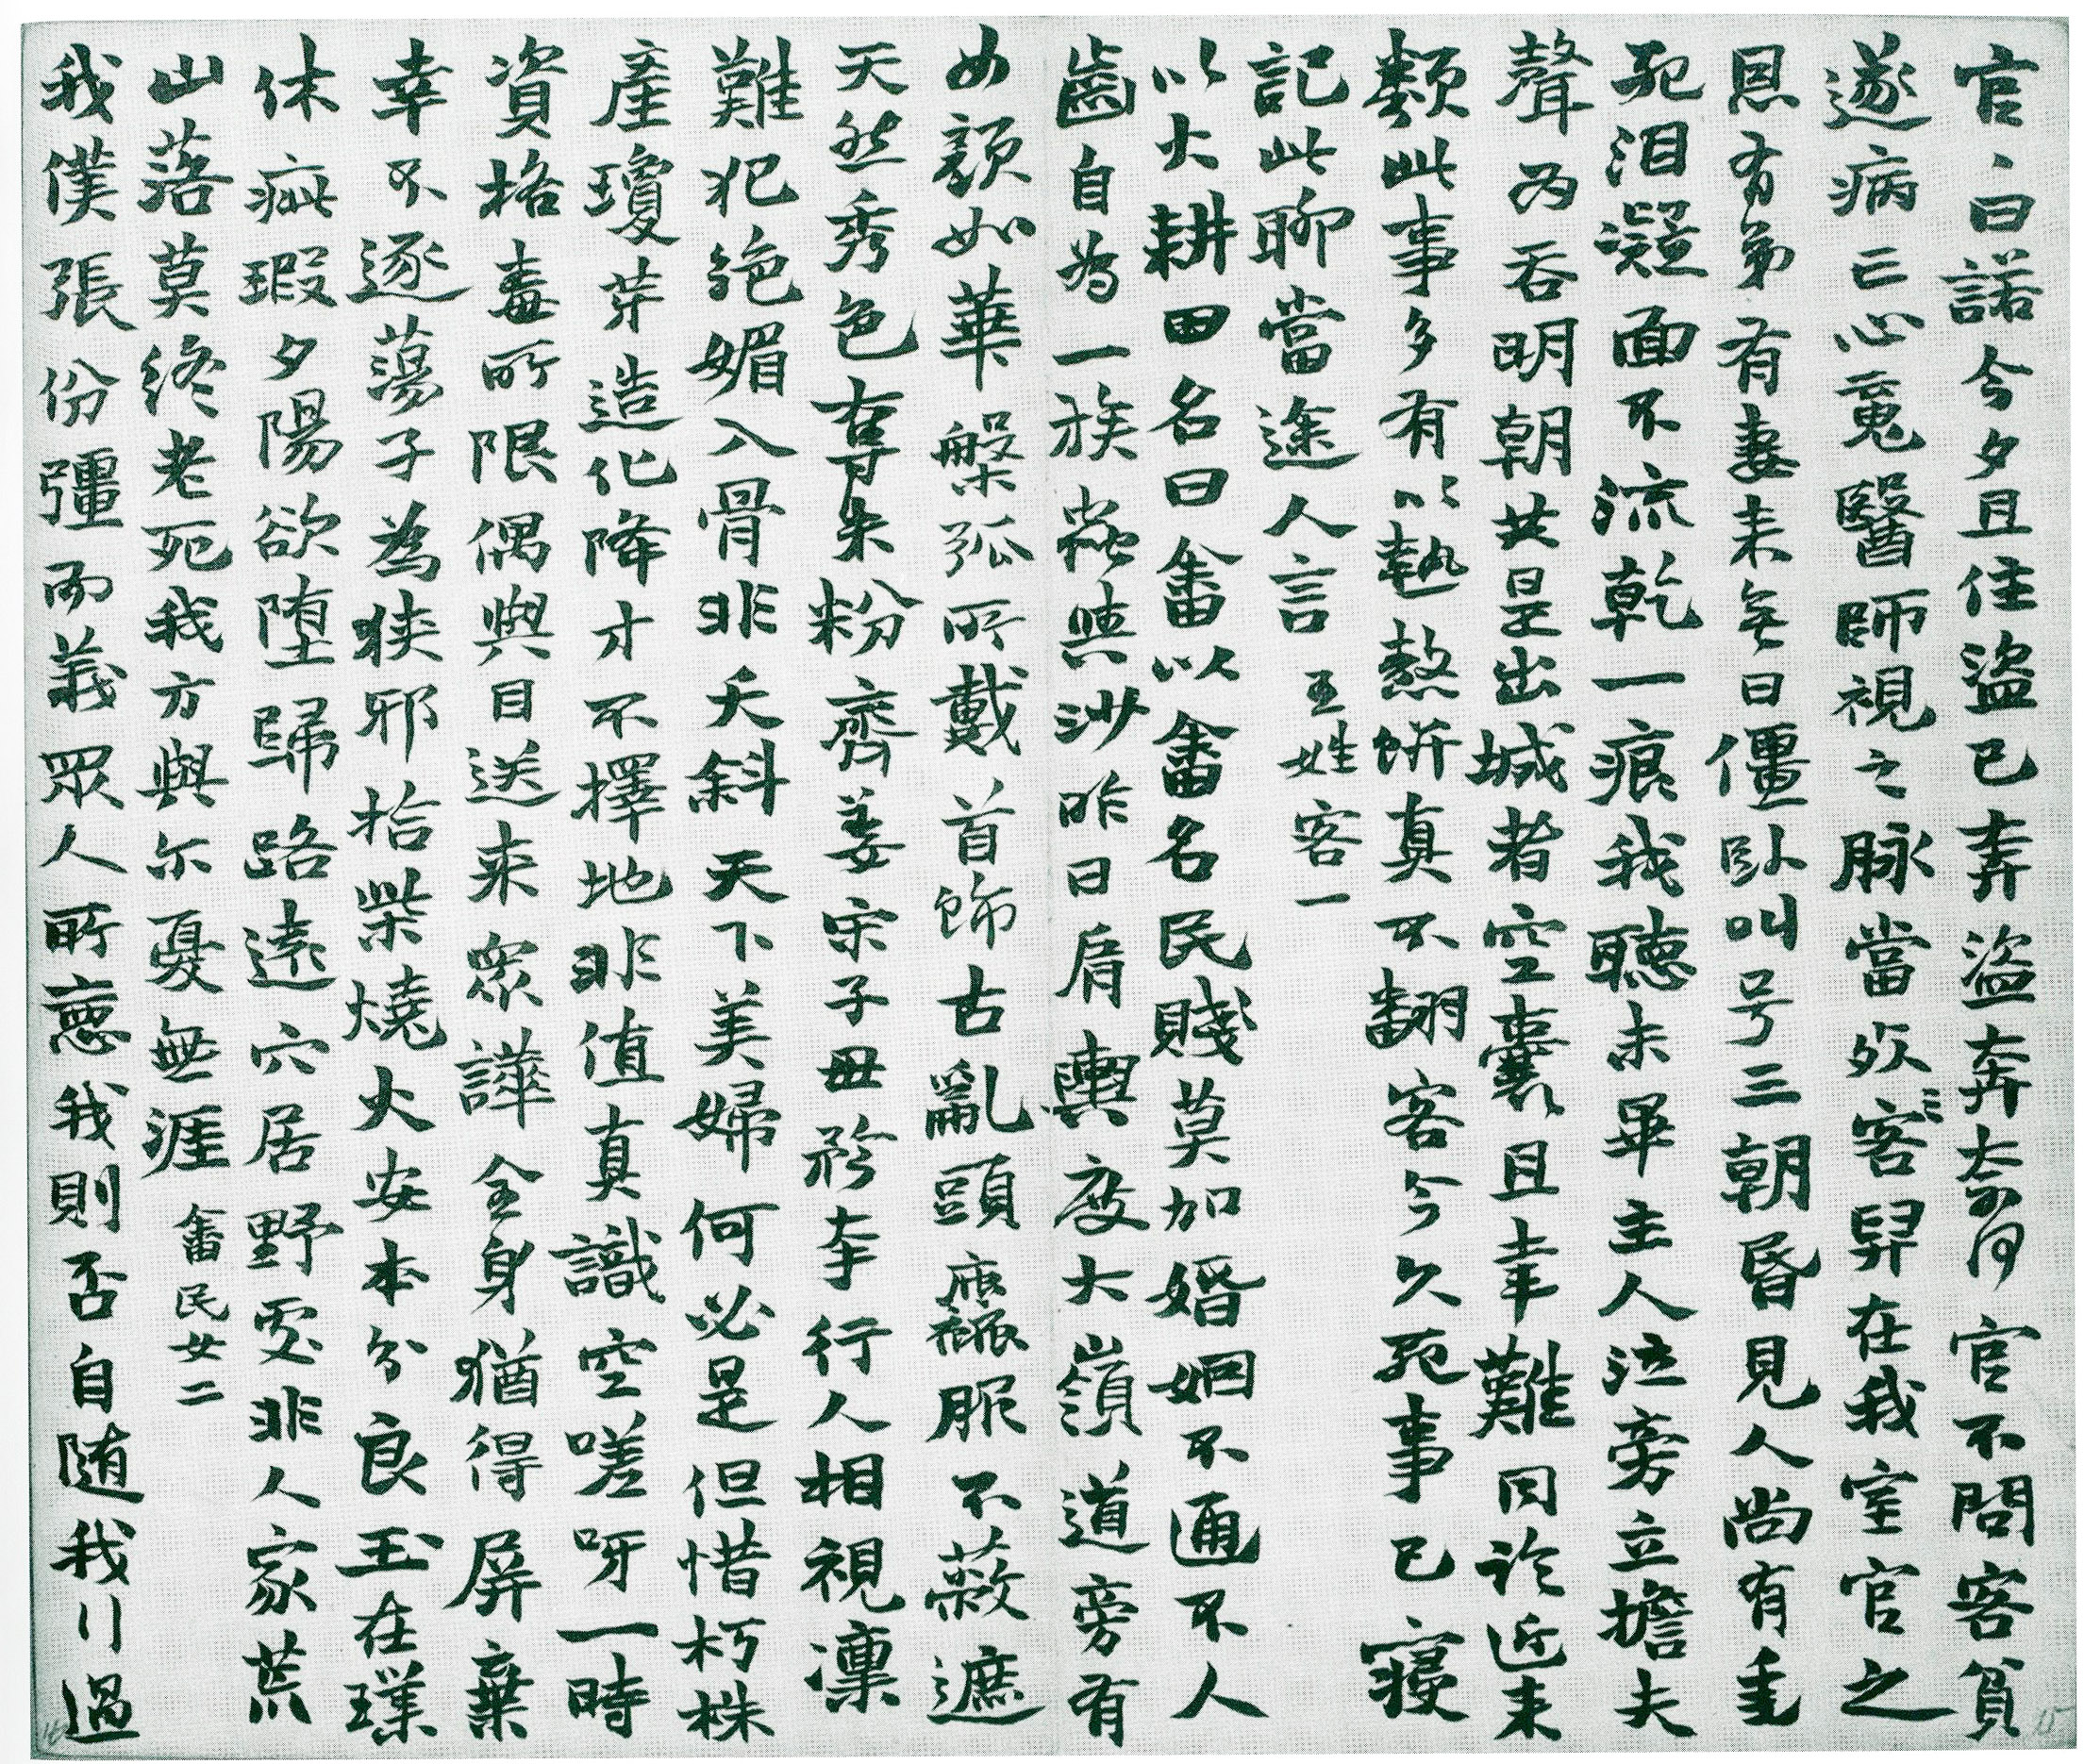 官曰諾今夕且住盜已弄盜奔奈何官不問客貧
遂病亡心寬醫師視之脉當死客舁在我室官官之
恩有弟有妻来無日僵臥叫号三朝昏見人尚有重
死泪凝面不流乾一痕我聽未畢主人泣旁立擔夫
聲为吞明朝共是出城者空囊且幸難同论近来
類此事多有以熱熬餅真不翻客今久死事已寢
記此聊當途人言 王姓客一
以火耕田名曰畬以畬名民賤莫加婚姻不通不人
齒自為一族蟲與沙昨日肩輿度大嶺道旁有
女顏如華槃弧所戴首飾古亂頭麤服不蔽遮
天然秀色奪朱粉齊姜宋子毋矜夸行人相視凜
難犯絶媚入骨非夭斜天下美婦何必是但惜朽株
產瓊芽造化降才不擇地非值真識空嗟呀一時
資格毒所限偶與目送来衆譁全身猶得屏棄
幸不逐蕩子為狹邪拾柴燒火安本分良玉在璞
休疵瑕夕陽欲堕歸路遠穴居野處非人家荒
山落莫終老死我方與尔憂無涯 畬民女二
我僕張份彊而義眾人所慝我則否自随我行過